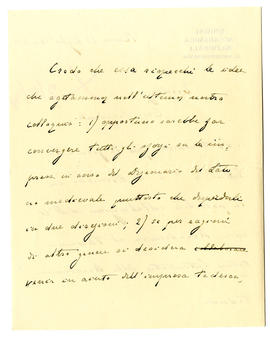 Credo che essa rispecchi le idee
che agitammo nell'ultimo nostro
colloquio: 1) opportuno sarebbe far
convergere tutti gli sforzi su la im-
presa in corso del Dizionario del lati-
no medievale piuttosto che disperderli
in due direzioni; 2) se per ragioni
di altro genere si desidera
venir in aiuto dell'impresa tedesca,